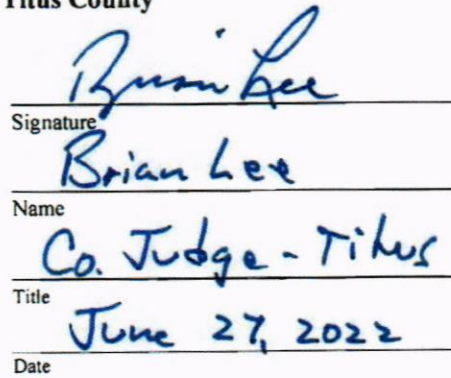 Titus County
Brian Lee
Signature
Brian Lee
Name
Co. Judge - Titus
Title
June 27, 2022
Date